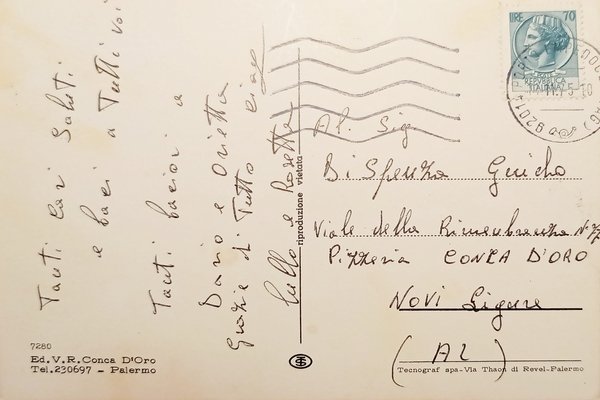 Tanti Cari Saluti
e baci a Tutti voi
Tanti bacioni a
Dario e Orietta
Grazie di Tutto ciao
Lello e Rosetta
riproduzione vietata
LIRE 70
92014
Al Sig.
Di Spenza Guido
Viale della Rimembranza N.
Pizzeria CONCA D'ORO
NOVI Ligure
(AL)
7280
Ed.V.R.Conca D'Oro
Tel.230697 - Palermo
Tecnograf spa-Via Thaon di Revel-Palermo